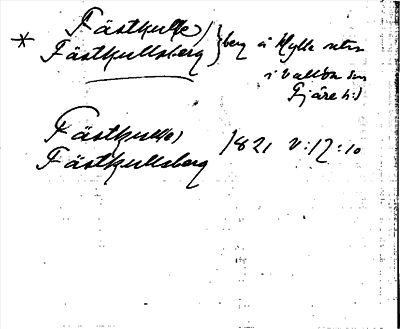 Fästkulle)
* Fästkullsberg } berg å Hylle
i Vallda sn
Fjäre hd
Fästkulle)
Fästkullsberg 1821 V:17:10